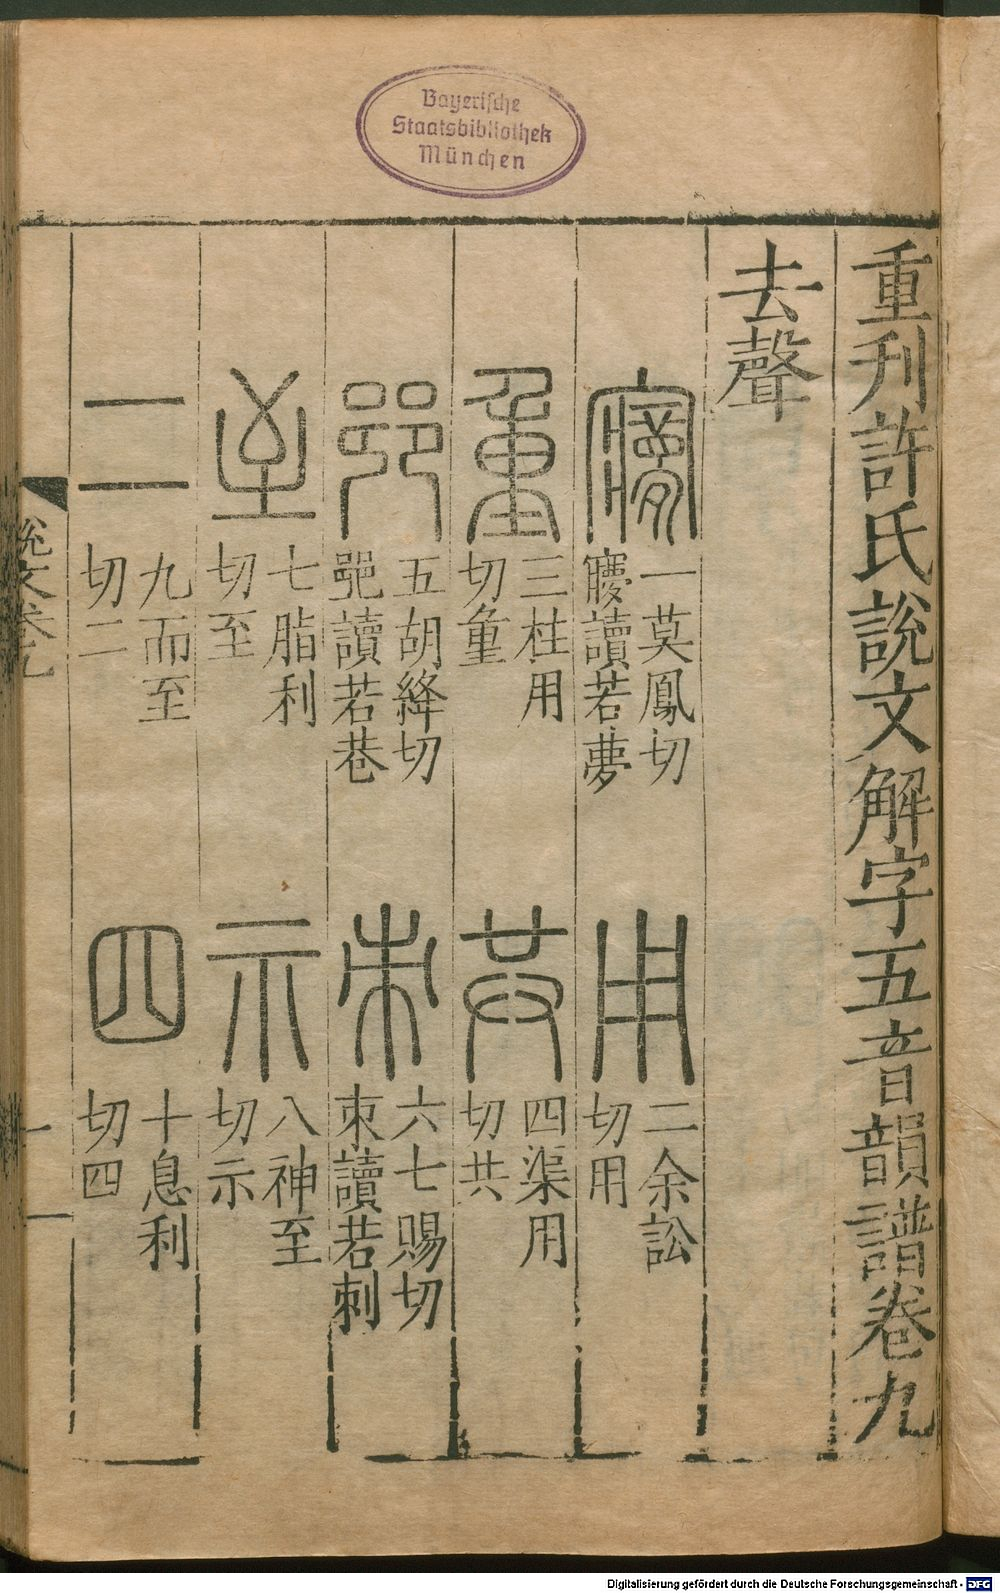 Bayerische
Staatsbibliothek
München
重刊許氏說文解字五音韻譜卷九
去聲
㝱
一莫鳳切
㝱讀若夢
用
二余訟
切用
重
三柱用
切重
共
四渠用
切共
𨛜
五胡絳切
𨛜讀若巷
朿
六七賜切
朿讀若刺
至
七脂利
切至
示
八神至
切示
二
九而至
切二
四
十息利
切四
說文卷九
一
Digitalisierung gefördert durch die Deutsche Forschungsgemeinschaft - DFG